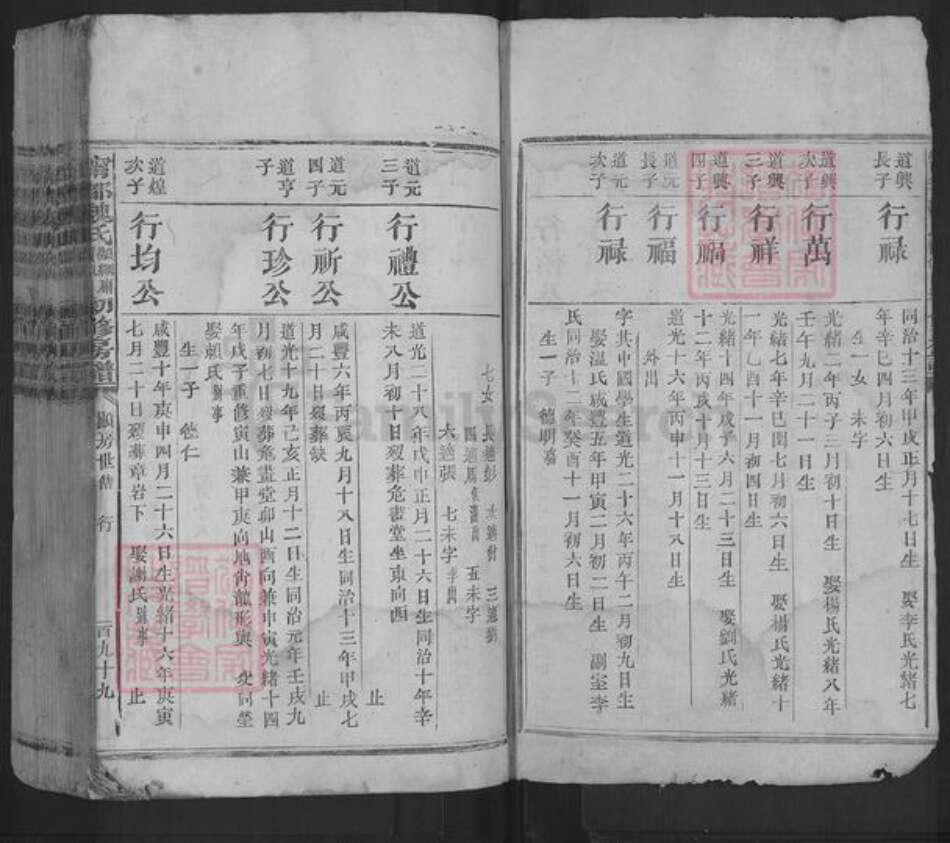 道興
長子
行祿
同治十三年甲戌正月十七日生 娶李氏光緒七
年辛巳四月初六日生
生一女 未字
道興
次子
行萬
光緒二年丙子三月初十日生 娶楊氏光緒八年
壬午九月二十一日生
道興
三子
行祥
光緒七年辛巳閏七月初六日生 娶楊氏光緒十
一年乙酉十一月初四日生
道興
四子
行福
光緒十四年戊子六月二十三日生 娶劉氏光緒
十二年丙戌十月十三日生
道元
長子
行福
道光十六年丙申十一月十八日生
外出
道元
次子
行祿
字其中國學生道光二十六年丙午二月初九日生
娶溫氏咸豐五年甲寅二月初二日生 副室李
氏同治十二年癸酉十一月初六日生
生一子 德明
七女 長適彭 次適 三適
四適馬 五未字
六適張 七未字
道元
三子
行禮公
道光二十八年戊申正月二十六日生同治十年辛
未八月初十日歿葬危畫堂坐東向西
止
道元
四子
行祈公
咸豐六年丙辰九月十八日生同治十三年甲戌七
月二十日歿葬缺
止
道亨
子
行珍公
道光十九年己亥正月十二日生同治元年壬戌九
月初七日歿葬危畫堂卯山酉向兼甲寅光緒十四
年戊子重修寅山兼甲庚向地肖龍形與 父同塋
娶賴氏
生一子 德仁
道煌
次子
行均公
咸豐十年庚申四月二十六日生光緒十六年庚寅
七月二十日歿葬章岩下 娶謝氏 止
氏 初修房譜
房世 行
一百九十九
FamilySearch